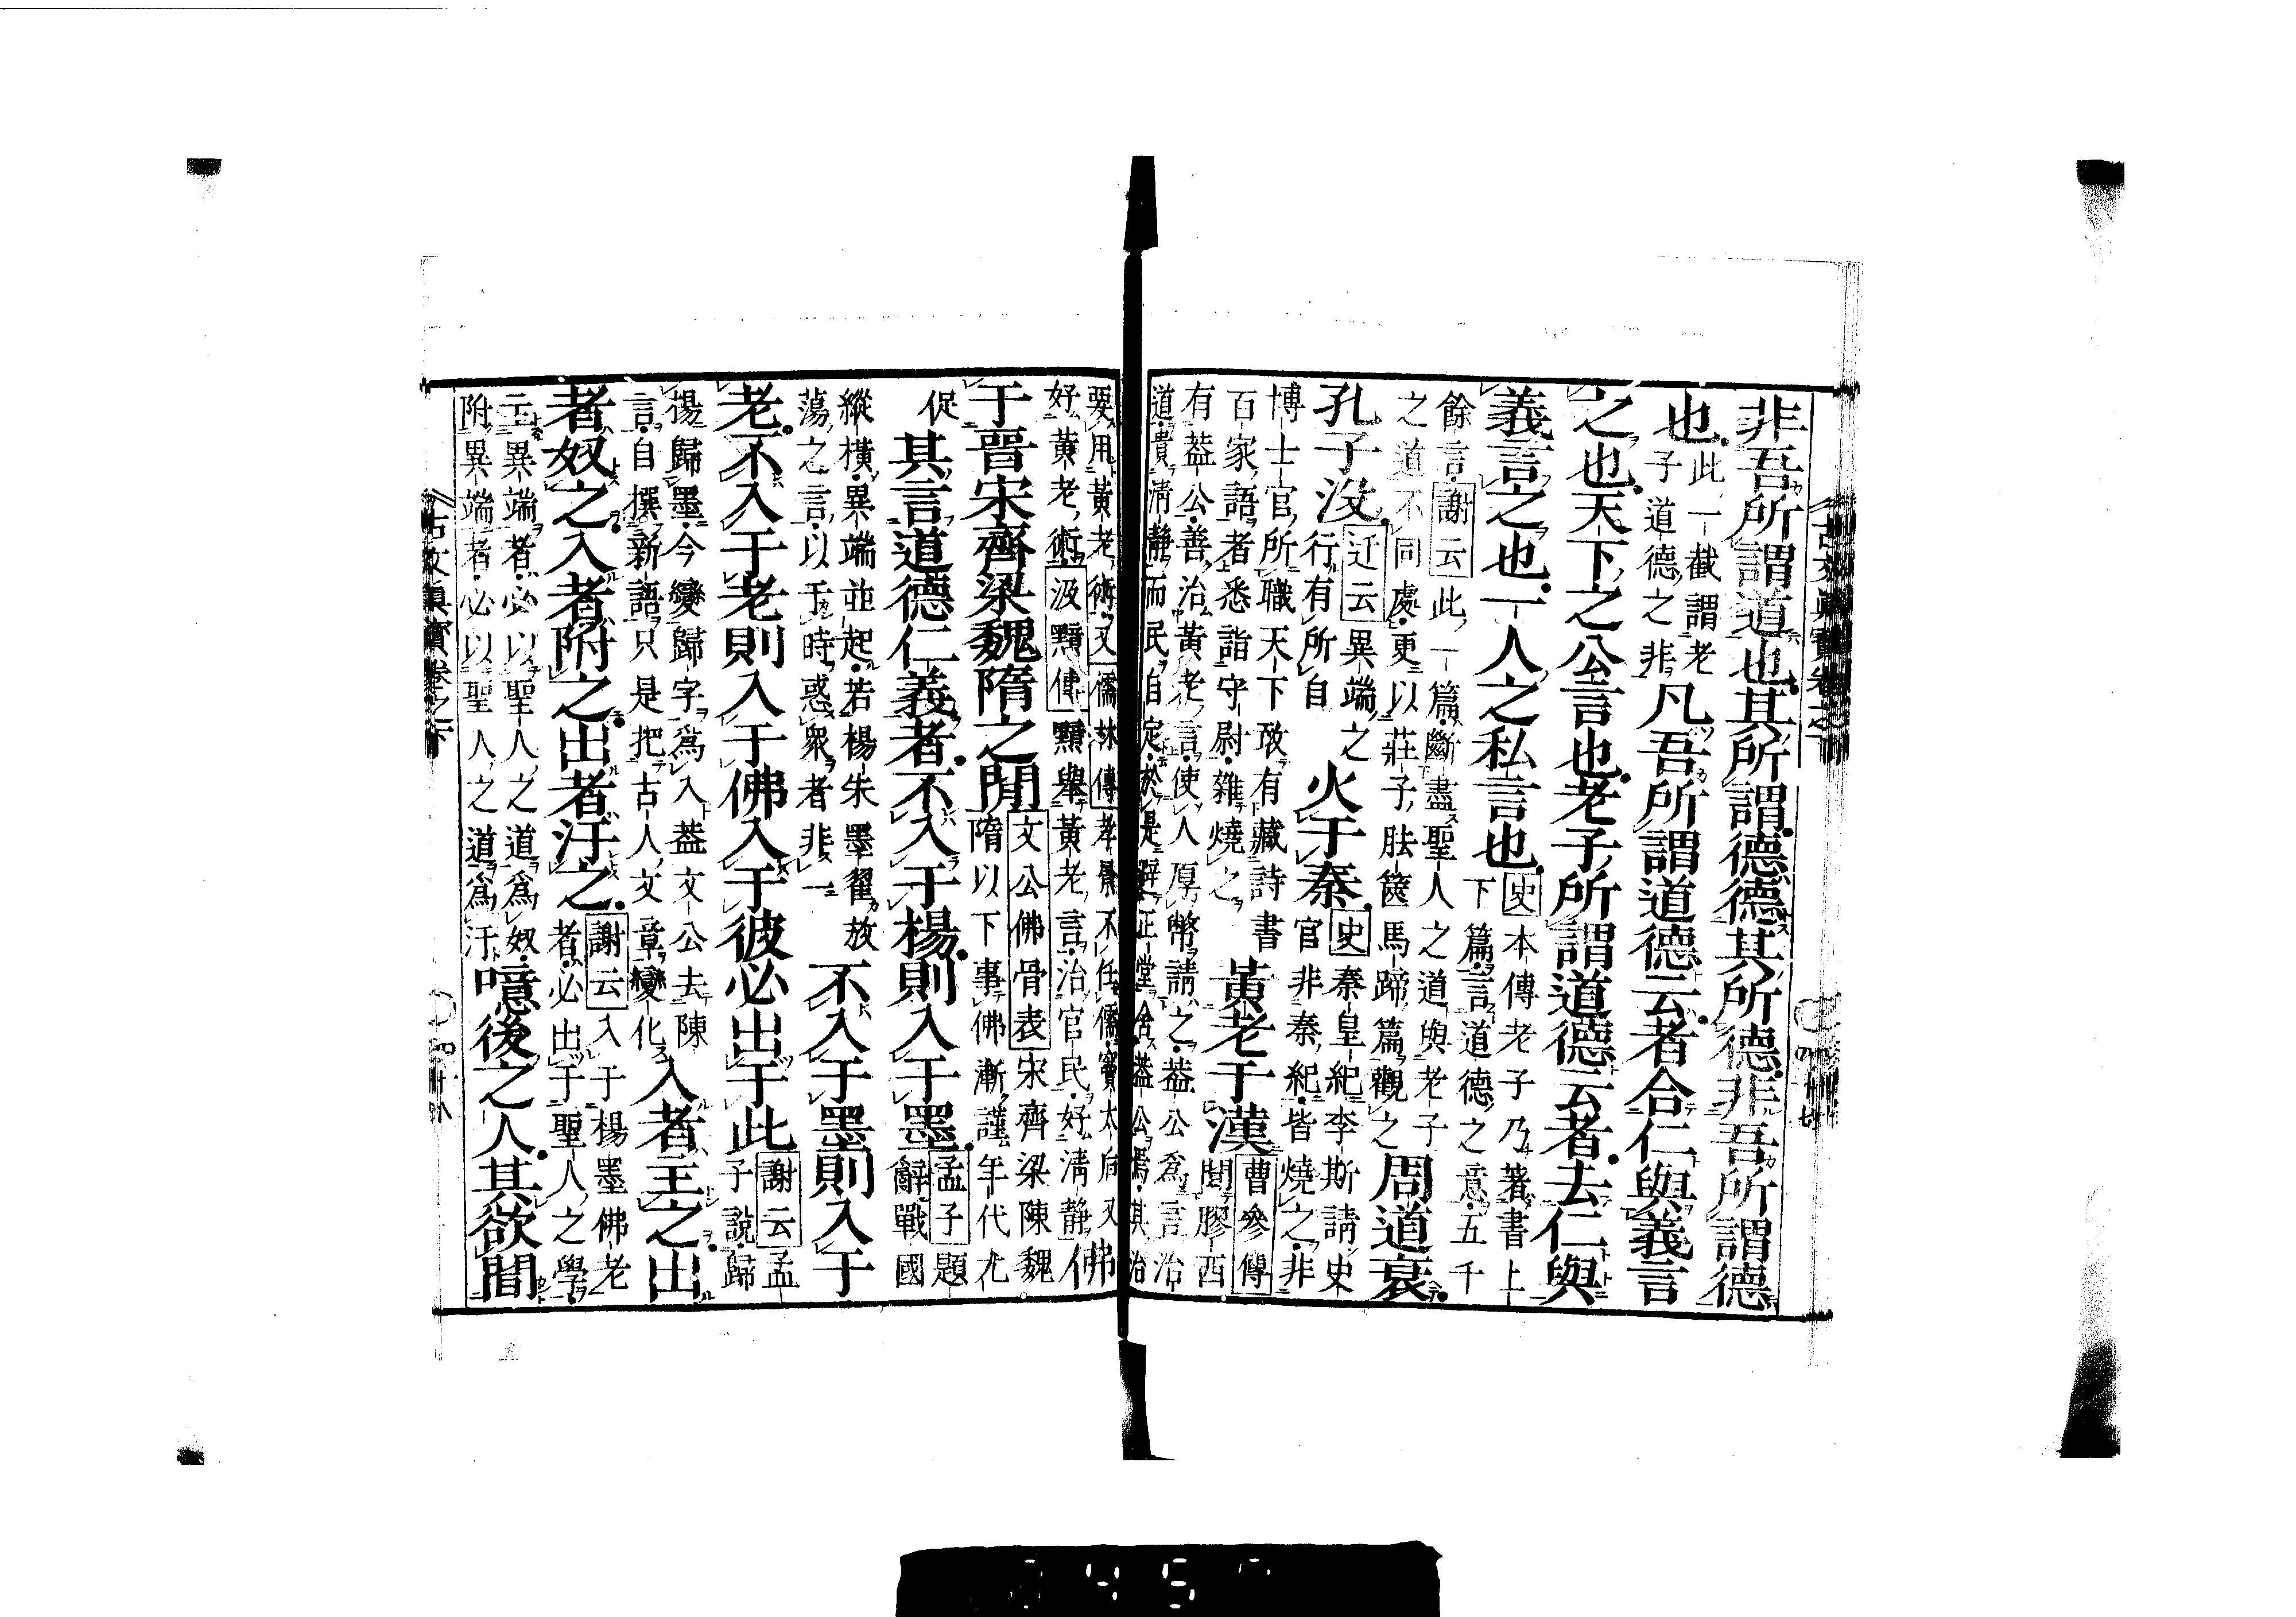 古文眞寶卷之下 四十七
非吾所謂道也其所謂德德其所德非吾所謂德
也此一截謂老子道德之非凡吾所謂道德云者合仁與義言
之也天下之公言也老子所謂道德云者去仁與
義言之也一人之私言也史本傳老子乃著書上下篇言道德之意五千
餘言謝云此一篇斷盡聖人之道與老子之道不同處更以莊子胠篋馬蹄篇觀之周道衰
孔子沒迂云異端之行有所自火于秦史秦皇紀李斯請史官非秦紀皆燒之非
博士官所職天下敢有藏詩書百家語者悉詣守尉雜燒之黃老于漢曹參傳聞膠西
有葢公善治黃老言使人厚幣請之葢公爲言治道貴淸靜而民自定於是避正堂舍葢公焉其治
要用黃老術又儒林傳孝景不任儒竇太后又好黃老術汲黯傳黯學黃老言治官民好淸靜佛
于晉宋齊梁魏隋之閒文公佛骨表宋齊梁陳魏隋以下事佛漸謹年代尤
促其言道德仁義者不入于楊則入于墨孟子題辭戰國
縱橫異端並起若楊朱墨翟放蕩之言以于時惑衆者非一不入于墨則入于
老不入于老則入于佛入于彼必出于此謝云孟子說歸
揚歸墨今變歸字爲入葢文公去陳言自撰新語只是把古人文章變化入者主之出
者奴之入者附之出者汙之謝云入于楊墨佛老者必出于聖人之學
主異端者必以聖人之道爲奴附異端者必以聖人之道爲汙噫後之人其欲聞
古文眞寶卷之下 四十八